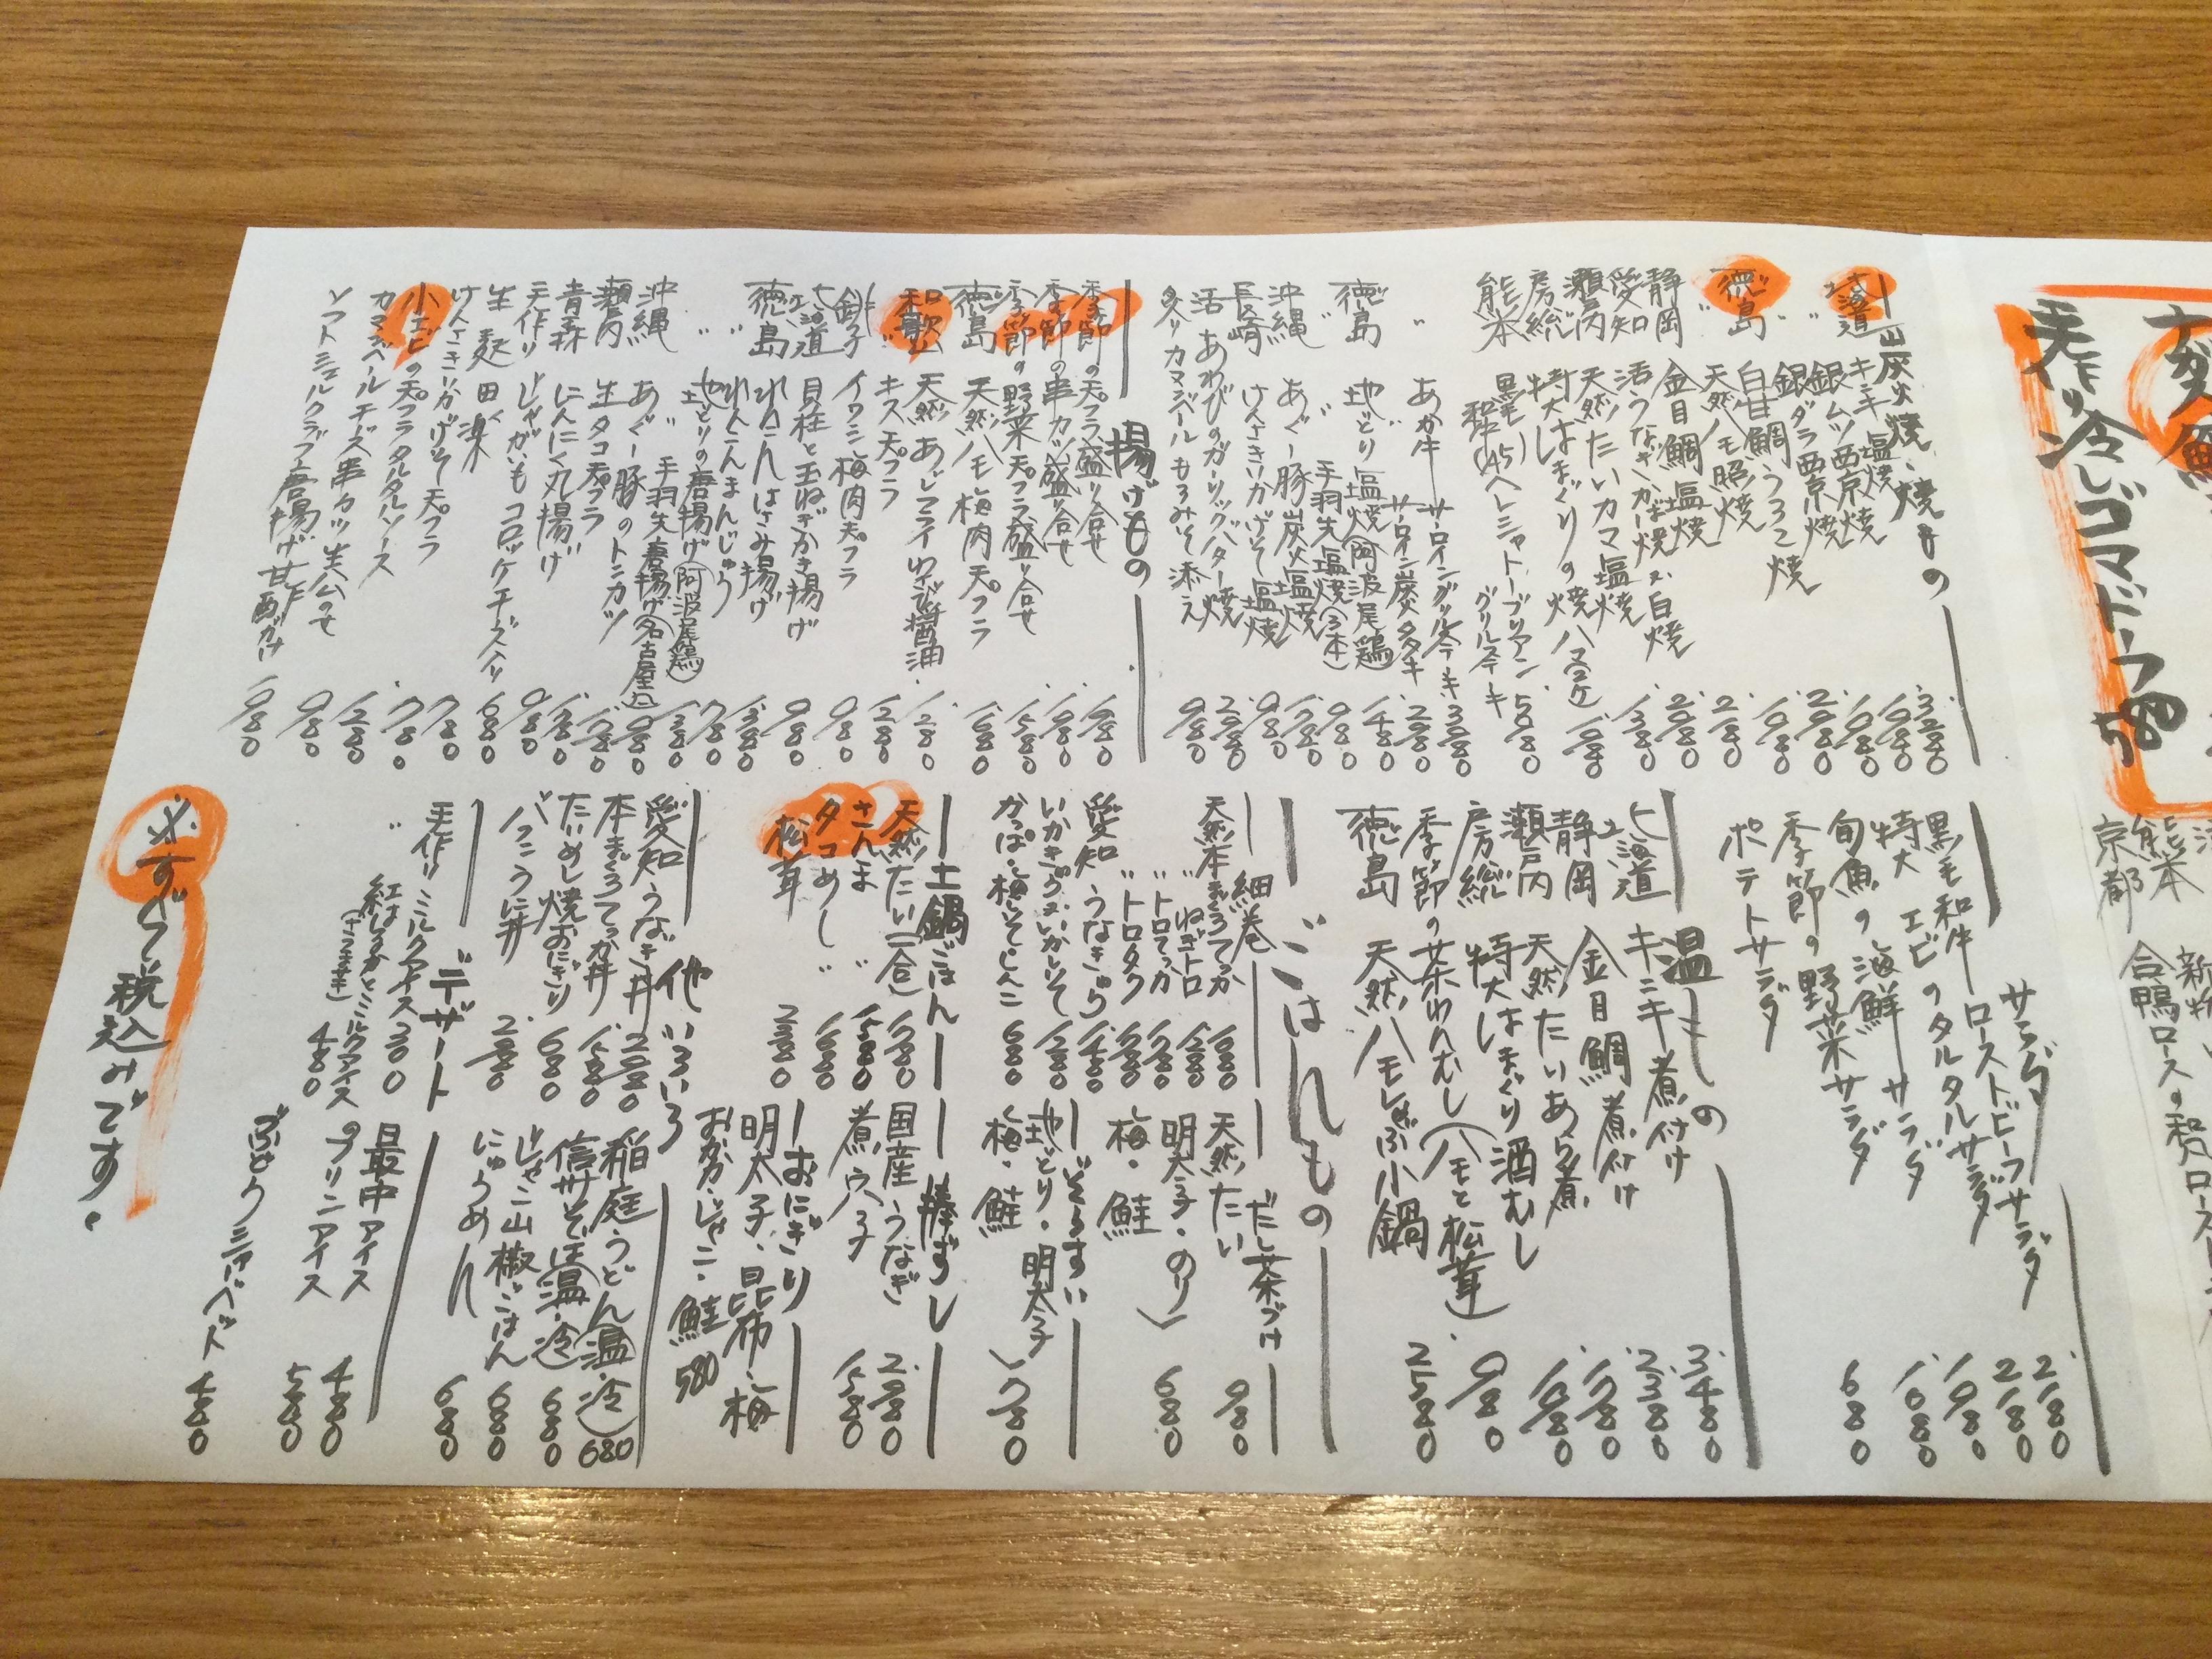 手作り冷しゴマドーフ 580
熊本
京都 合鴨ロースの和
炭火焼、焼もの
北海道 キンキ塩焼 3.280
〃 銀ムツ西京焼 1.980
銀ダラ西京焼 1.980
白甘鯛うろこ焼 2.980
徳島 天然ハモ照焼 1.980
静岡 金目鯛塩焼 2.180
愛知 活うなぎかば焼又は白焼 2.980
瀬戸内 天然たいカマ塩焼 1.380
房総 特大はまぐりの焼ハマ
熊本 黒毛和牛(A5)ヘレシャトーブリアングリルステーキ 5.980
〃 あか牛 サーロイングリルステーキ 3.980
サーロイン炭火タタキ 2.980
徳島 地どり塩焼(阿波尾鶏) 1.480
〃 〃 手羽先塩焼(3本) 980
沖縄 あぐー豚炭火塩焼 1.780
長崎 けんさきいかげそ塩焼 980
活あわびのガーリックバター焼 2.980
炙りカマンベールもろみそ添え 980
揚げもの
季節の天プラ盛り合せ 1.980
季節の串カツ盛り合せ 1.980
季節の野菜天プラ盛り合せ 1.580
徳島 天然ハモ梅肉天プラ 1.980
和歌山 天然あじフライわさび醤油 1.280
〃 キス天プラ 1.280
銚子 イワシ梅肉天プラ 980
北海道 貝柱と玉ねぎかき揚げ 980
徳島 れんこんはさみ揚げ
〃 れんこんまんじゅう 780
〃 地どりの唐揚げ(阿波尾鶏) 1.380
〃 手羽先唐揚げ(名古屋) 980
沖縄 あぐー豚のトンカツ
瀬戸内 生タコ天プラ
青森 にんにく丸揚げ 980
手作りじゃがいもコロッケチーズ入り 680
生麩田楽 780
けんさきいかげそ天プラ 780
小エビの天プラタルタルソース 1.280
カマンベールチーズ串カツ生ハムのせ 980
ソフトシェルクラブ唐揚げ甘酢がけ 1.980
サラダ
黒毛和牛ローストビーフサラダ 2.180
特大エビのタルタルサラダ 2.180
旬魚の海鮮サラダ 1.980
季節の野菜サラダ 1.080
ポテトサラダ 680
温もの
北海道 キンキ煮付け 3.480
静岡 金目鯛煮付け 2.380
瀬戸内 天然たいあら煮 1.780
房総 特大はまぐり酒むし
季節の茶わんむし(ハモと松茸) 980
徳島 天然ハモしゃぶ小鍋 2.580
ごはんもの
細巻
天然本まぐろてっか 1.680
〃 ねぎトロ 1.280
〃 トロてっか
〃 トロタク
愛知 うなきゅう 1.480
いかきゅう又いかしそ 1.280
かっぱ・梅しそ・しんこ 680
だし茶づけ
天然たい 980
明太子・のり
梅・鮭 680
ぞうすい
地どり・明太子
梅・鮭 780
土鍋ごはん
天然たい(一合)
さんま 〃 1.580
タコめし 〃 1.680
松茸 2.980
棒ずし
国産うなぎ 2.980
煮穴子 1.580
おにぎり
明太子、昆布・梅
おかか・じゃこ・鮭 580
他いろいろ
愛知 うなぎ丼 2.980
本まぐろてっか丼 1.580
たいめし焼おにぎり 680
バフンうに丼 2.980
稲庭うどん(温・冷) 680
信州そば(温・冷) 680
じゃこ山椒ごはん 680
にゅうめん 680
デザート
手作りミルクアイス 300
〃 紅はるかとミルクアイス 480
(さつまいも)
最中アイス 480
のプリンアイス 580
ぶどうシャーベット 480
※すべて税込みです。